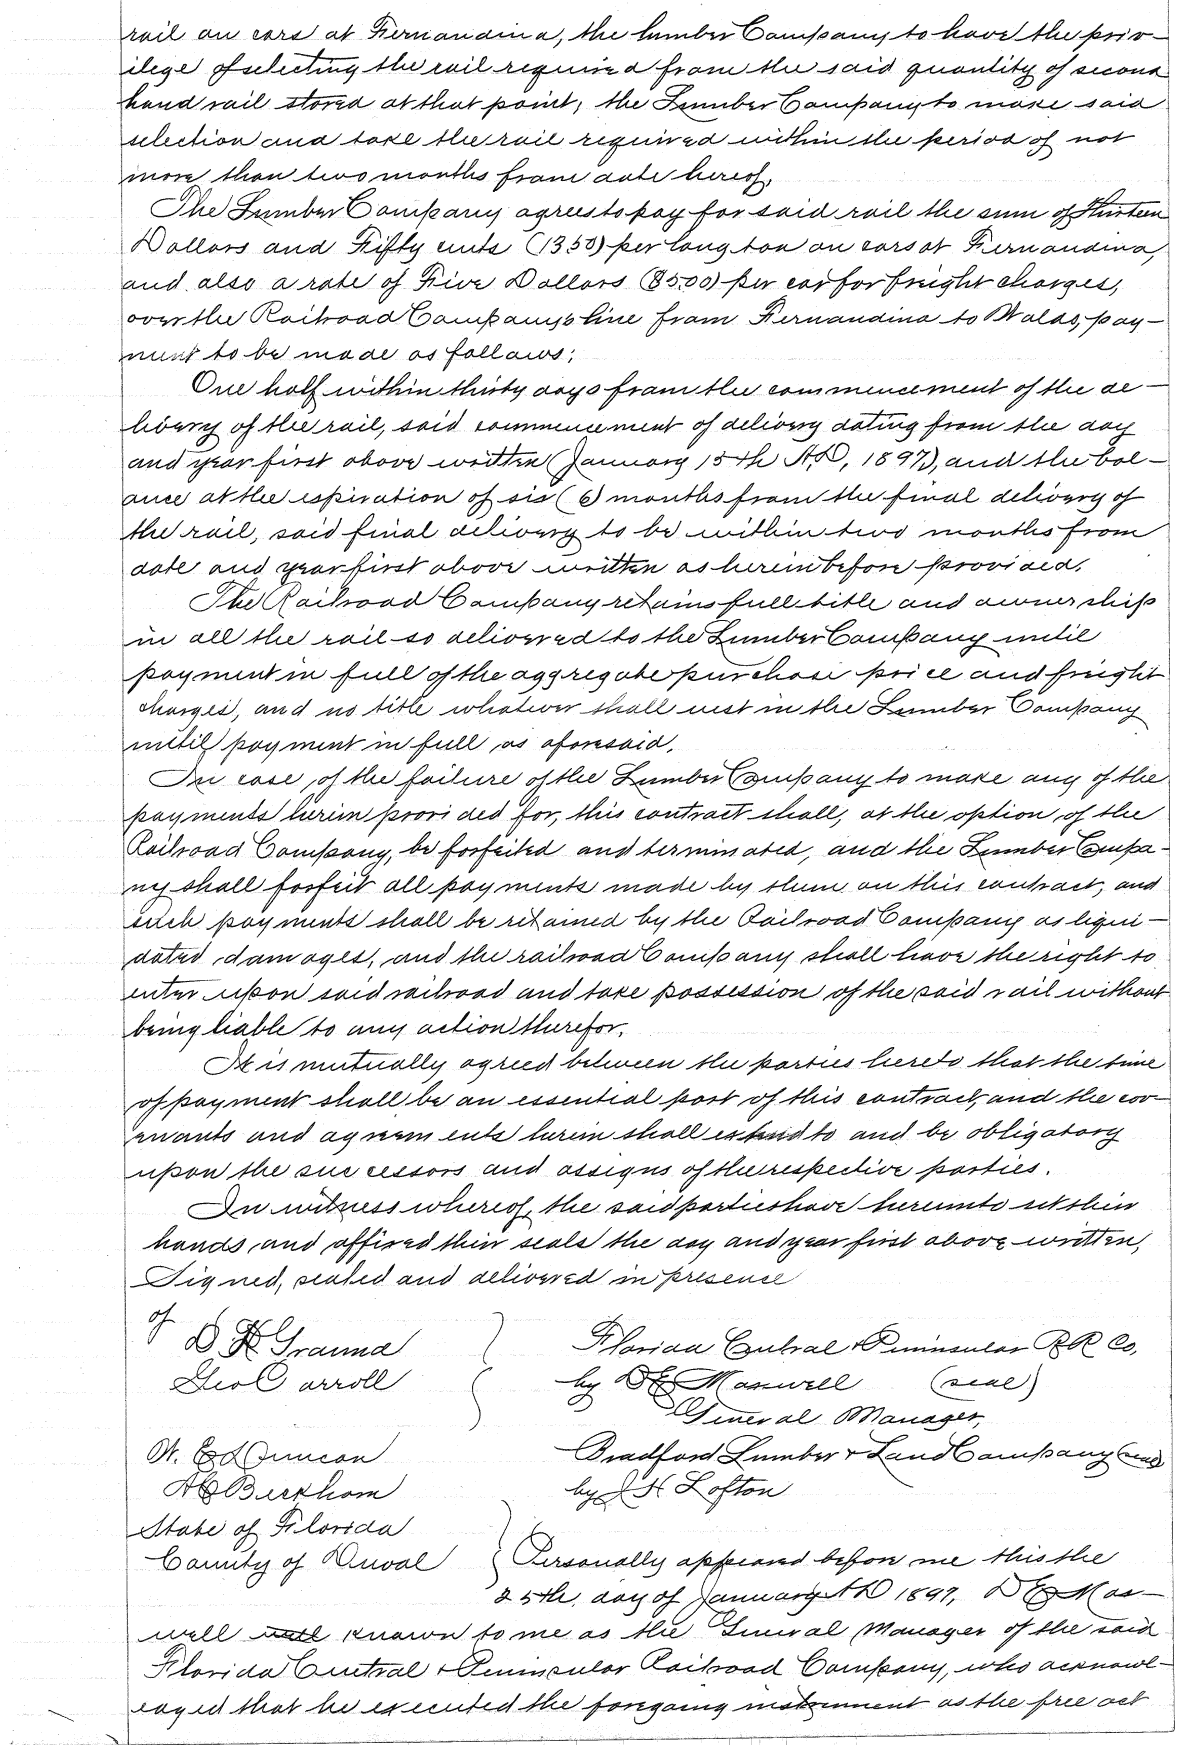 rail on cars at Fernandina, the lumber Company to have the priv-
ilege of selecting the rail required from the said quantity of second
hand rail stored at that point; the Lumber Company to make said
selection and take the rail required within the period of not
more than two months from date hereof.
The Lumber Company agrees to pay for said rail the sum of Thirteen
Dollars and Fifty cents (1350) per long ton on cars at Fernandina,
and also a rate of Five Dollars ($5.00) per car for freight charges,
over the Railroad Company's line from Fernandina to Waldo, pay-
ment to be made as follows:
One half within thirty days from the commencement of the de-
livery of the rail, said commencement of delivery dating from the day
and year first above written (January 15th A.D. 1897), and the bal-
ance at the expiration of six (6) months from the final delivery of
the rail, said final delivery to be within two months from
date and year first above written as hereinbefore provided.
The Railroad Company retains full title and ownership
in all the rail so delivered to the Lumber Company until
payment in full of the aggregate purchase price and freight
charges, and no title whatever shall vest in the Lumber Company
until payment in full as aforesaid.
In case of the failure of the Lumber Company to make any of the
payments herein provided for, this contract shall, at the option of the
Railroad Company, be forfeited and terminated, and the Lumber Compa-
ny shall forfeit all payments made by them on this contract, and
such payments shall be retained by the Railroad Company as liqui-
dated damages, and the railroad Company shall have the right to
enter upon said railroad and take possession of the said rail without
being liable to any action therefor.
It is mutually agreed between the parties hereto that the time
of payment shall be an essential part of this contract, and the cov-
enants and agreements herein shall extend to and be obligatory
upon the successors and assigns of the respective parties.
In witness whereof, the said parties have hereunto set their
hands and affixed their seals the day and year first above written,
Signed, sealed and delivered in presence
of
D H Tranna Florida Central & Peninsular R R Co,
Geo Carroll by D E Maxwell (seal)
General Manager,
W. E Duncan Bradford Lumber & Land Company (seal)
A C Berkham by J H Lofton
State of Florida
County of Duval Personally appeared before me this the
25th, day of January A D 1897, D E Max-
well well known to me as the General Manager of the said
Florida Central & Peninsular Railroad Company, who acknowl-
edged that he executed the foregoing instrument as the free act